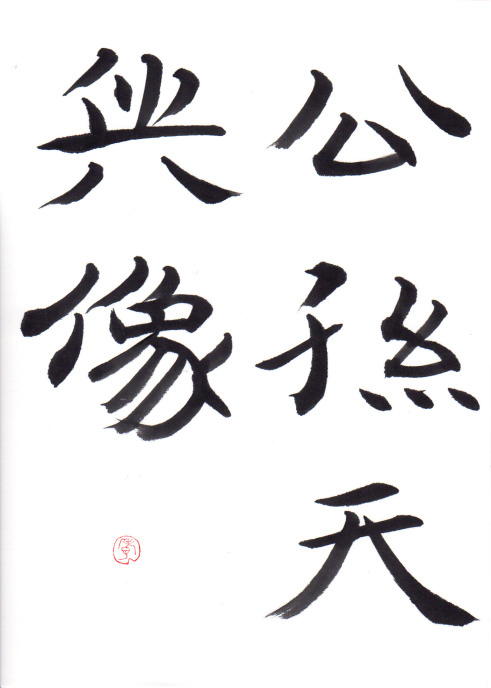 公孫天
興像